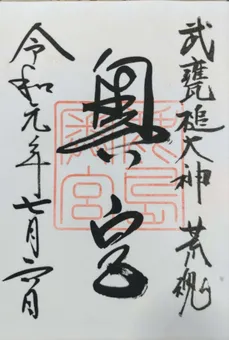 武甕槌大神 荒魂
奥宮
令和元年七月六日
鹿島
奥宮